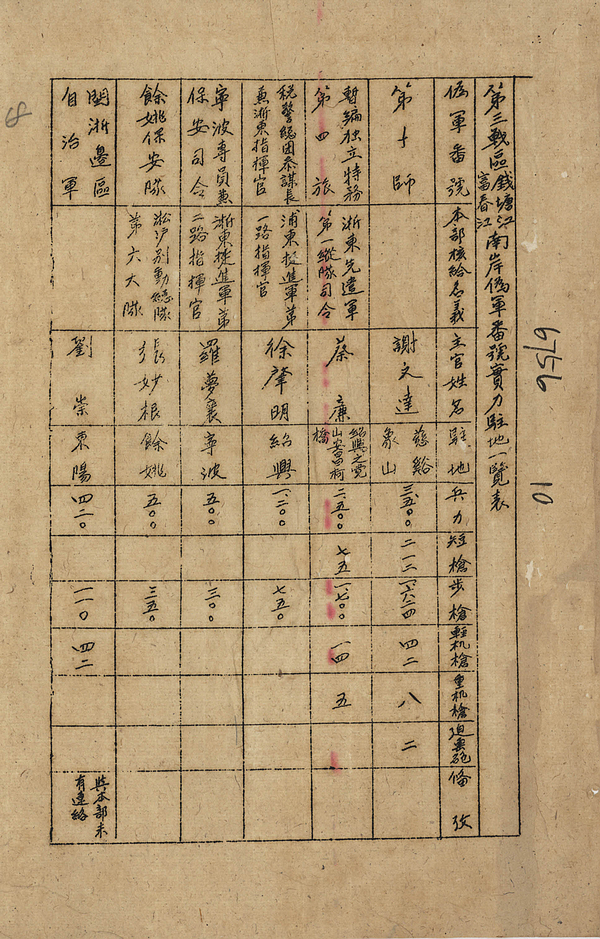 第三戰區錢塘江富春江南岸偽軍番號實力駐地一覽表
偽軍番號
本部核給名義
主官姓名
駐地
兵力
短槍
步槍
輕机槍
重机槍
迫擊砲
備攷
第十師
謝文達
慈谿
象山
三、五〇〇
二一二
一、六二四
四二
八
二
暫編独立特務
第四旅
浙東先遣軍
第一縱隊司令
蔡廉
紹興之党
山安昌柯
橋
二、五〇〇
七五
一、七〇〇
一四
五
稅警總团参謀長
兼浙東指揮官
浦東挺進軍第
一路指揮官
徐肇明
紹興
一、二〇〇
七五〇
寧波專員兼
保安司令
浙東挺進軍第
二路指揮官
羅夢襄
寧波
五〇〇
三〇〇
餘姚保安隊
淞沪别動總隊
第六大隊
張妙根
餘姚
五〇〇
三五〇
閩浙邊區
自治軍
劉崇
東陽
四二〇
一一〇
四二
與本部未
有連絡
68
6756
10